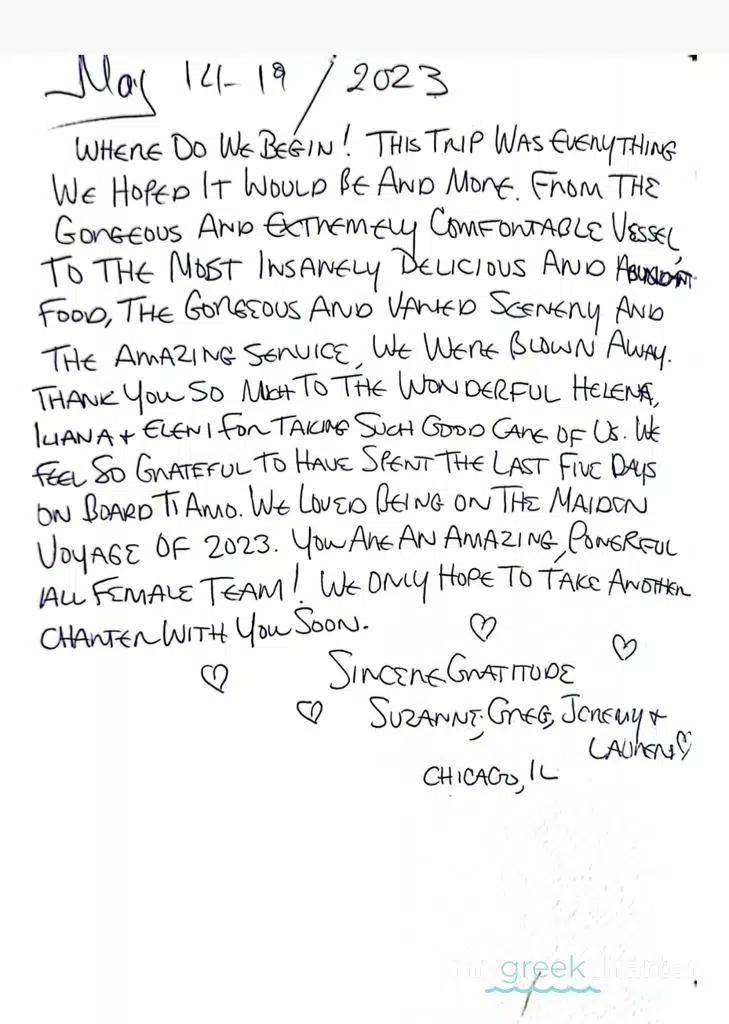 May 14-19/2023
WHERE DO WE BEGIN! THIS TRIP WAS EVERYTHING
WE HOPED IT WOULD BE AND MORE. FROM THE
GORGEOUS AND EXTREMELY COMFORTABLE VESSEL,
TO THE MOST INSANELY DELICIOUS AND ABUNDANT
FOOD, THE GORGEOUS AND VARIED SCENERY AND
THE AMAZING SERVICE, WE WERE BLOWN AWAY.
THANK YOU SO MUCH TO THE WONDERFUL HELENA,
ILIANA + ELENI FOR TAKING SUCH GOOD CARE OF US. WE
FEEL SO GRATEFUL TO HAVE SPENT THE LAST FIVE DAYS
ON BOARD TI AMO. WE LOVED BEING ON THE MAIDEN
VOYAGE OF 2023. YOU ARE AN AMAZING, POWERFUL
ALL FEMALE TEAM! WE ONLY HOPE TO TAKE ANOTHER
CHARTER WITH YOU SOON.
SINCERE GRATITUDE
SUZANNE, GREG, JEREMY +
LAUREN
CHICAGO, IL
greek